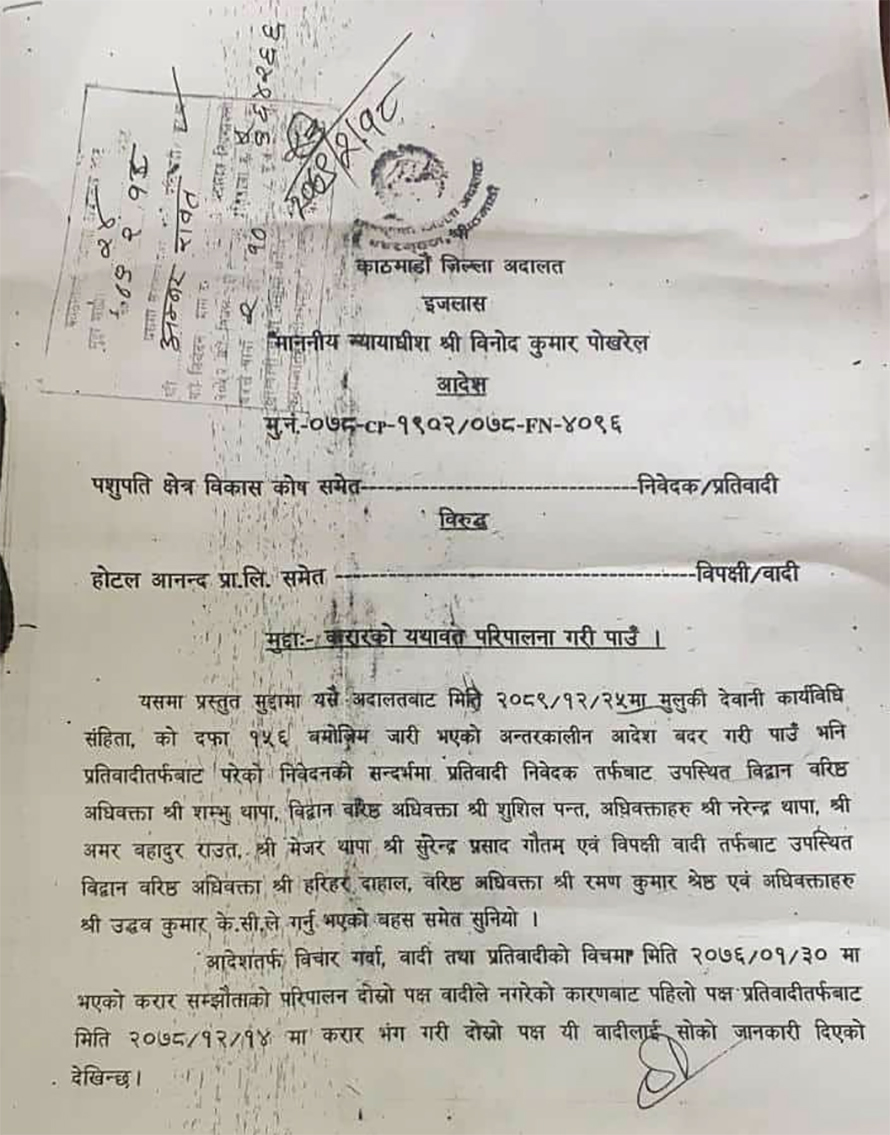 २०७९/२/१८
काठमाडौं जिल्ला अदालत
इजलास
माननीय न्यायाधीश श्री विनोद कुमार पोखरेल
आदेश
मु.नं.-०७८-CP-१९०२/०७८-FN-४०९६
पशुपति क्षेत्र विकास कोष समेत------------------------------निवेदक/प्रतिवादी
विरुद्ध
होटल आनन्द प्रा.लि. समेत ----------------------------------------विपक्षी/वादी
मुद्दाः- करारको यथावत परिपालना गरी पाउँ ।
यसमा प्रस्तुत मुद्दामा यसै अदालतवाट मिति २०८९/१२/२५मा मुलुकी देवानी कार्यविधि
संहिता, को दफा १५६ बमोजिम जारी भएको अन्तरकालीन आदेश बदर गरी पाउँ भनि
प्रतिवादीतर्फबाट परेको निवेदनकी सन्दर्भमा प्रतिवादी निवेदक तर्फबाट उपस्थित विद्वान वरिष्ठ
अधिवक्ता श्री शम्भु थापा, विद्वान वरिष्ठ अधिवक्ता श्री शुशिल पन्त, अधिवक्ताहरु श्री नरेन्द्र थापा, श्री
अमर वहादुर राउत, श्री मेजर थापा श्री सुरेन्द्र प्रसाद गौतम् एवं विपक्षी वादी तर्फबाट उपस्थित
विद्वान वरिष्ठ अधिवक्ता श्री हरिहर दाहाल, वरिष्ठ अधिवक्ता श्री रमण कुमार श्रेष्ठ एवं अधिवक्ताहरु
श्री उद्धव कुमार के.सी.ले गर्नु भएको बहस समेत सुनियो ।
आदेशतर्फ विचार गर्दा, वादी तथा प्रतिवादीको विचमा मिति २०७६/०१/३० मा
भएको करार सम्झौताको परिपालन दोस्रो पक्ष वादीले नगरेको कारणबाट पहिलो पक्ष प्रतिवादीतर्फबाट
मिति २०७८/१२/१४ मा करार भंग गरी दोस्रो पक्ष यी वादीलाई सोको जानकारी दिएको
देखिन्छ।